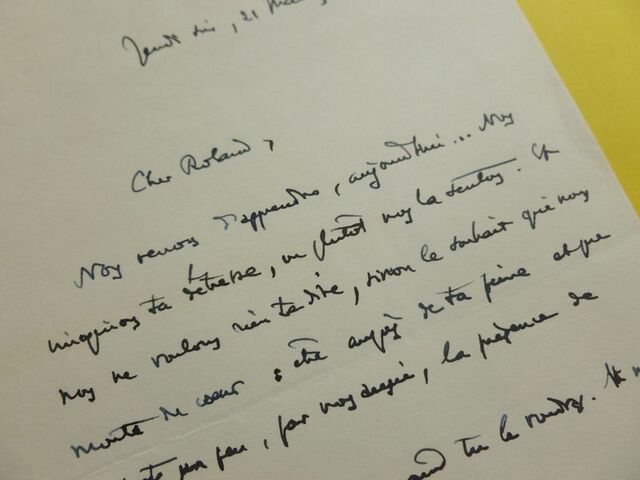 Jeudi soir, 21
Cher Roland,
Nous venons d'apprendre, aujourd'hui... Nous
imaginons ta détresse, ou plutôt nous la sentons. Et
nous ne voulons rien te dire, sinon le souhait que nous
monte du cœur : être auprès de ta peine et que
un peu, par nos pensées, la présence de
quand tu le voudras. Et